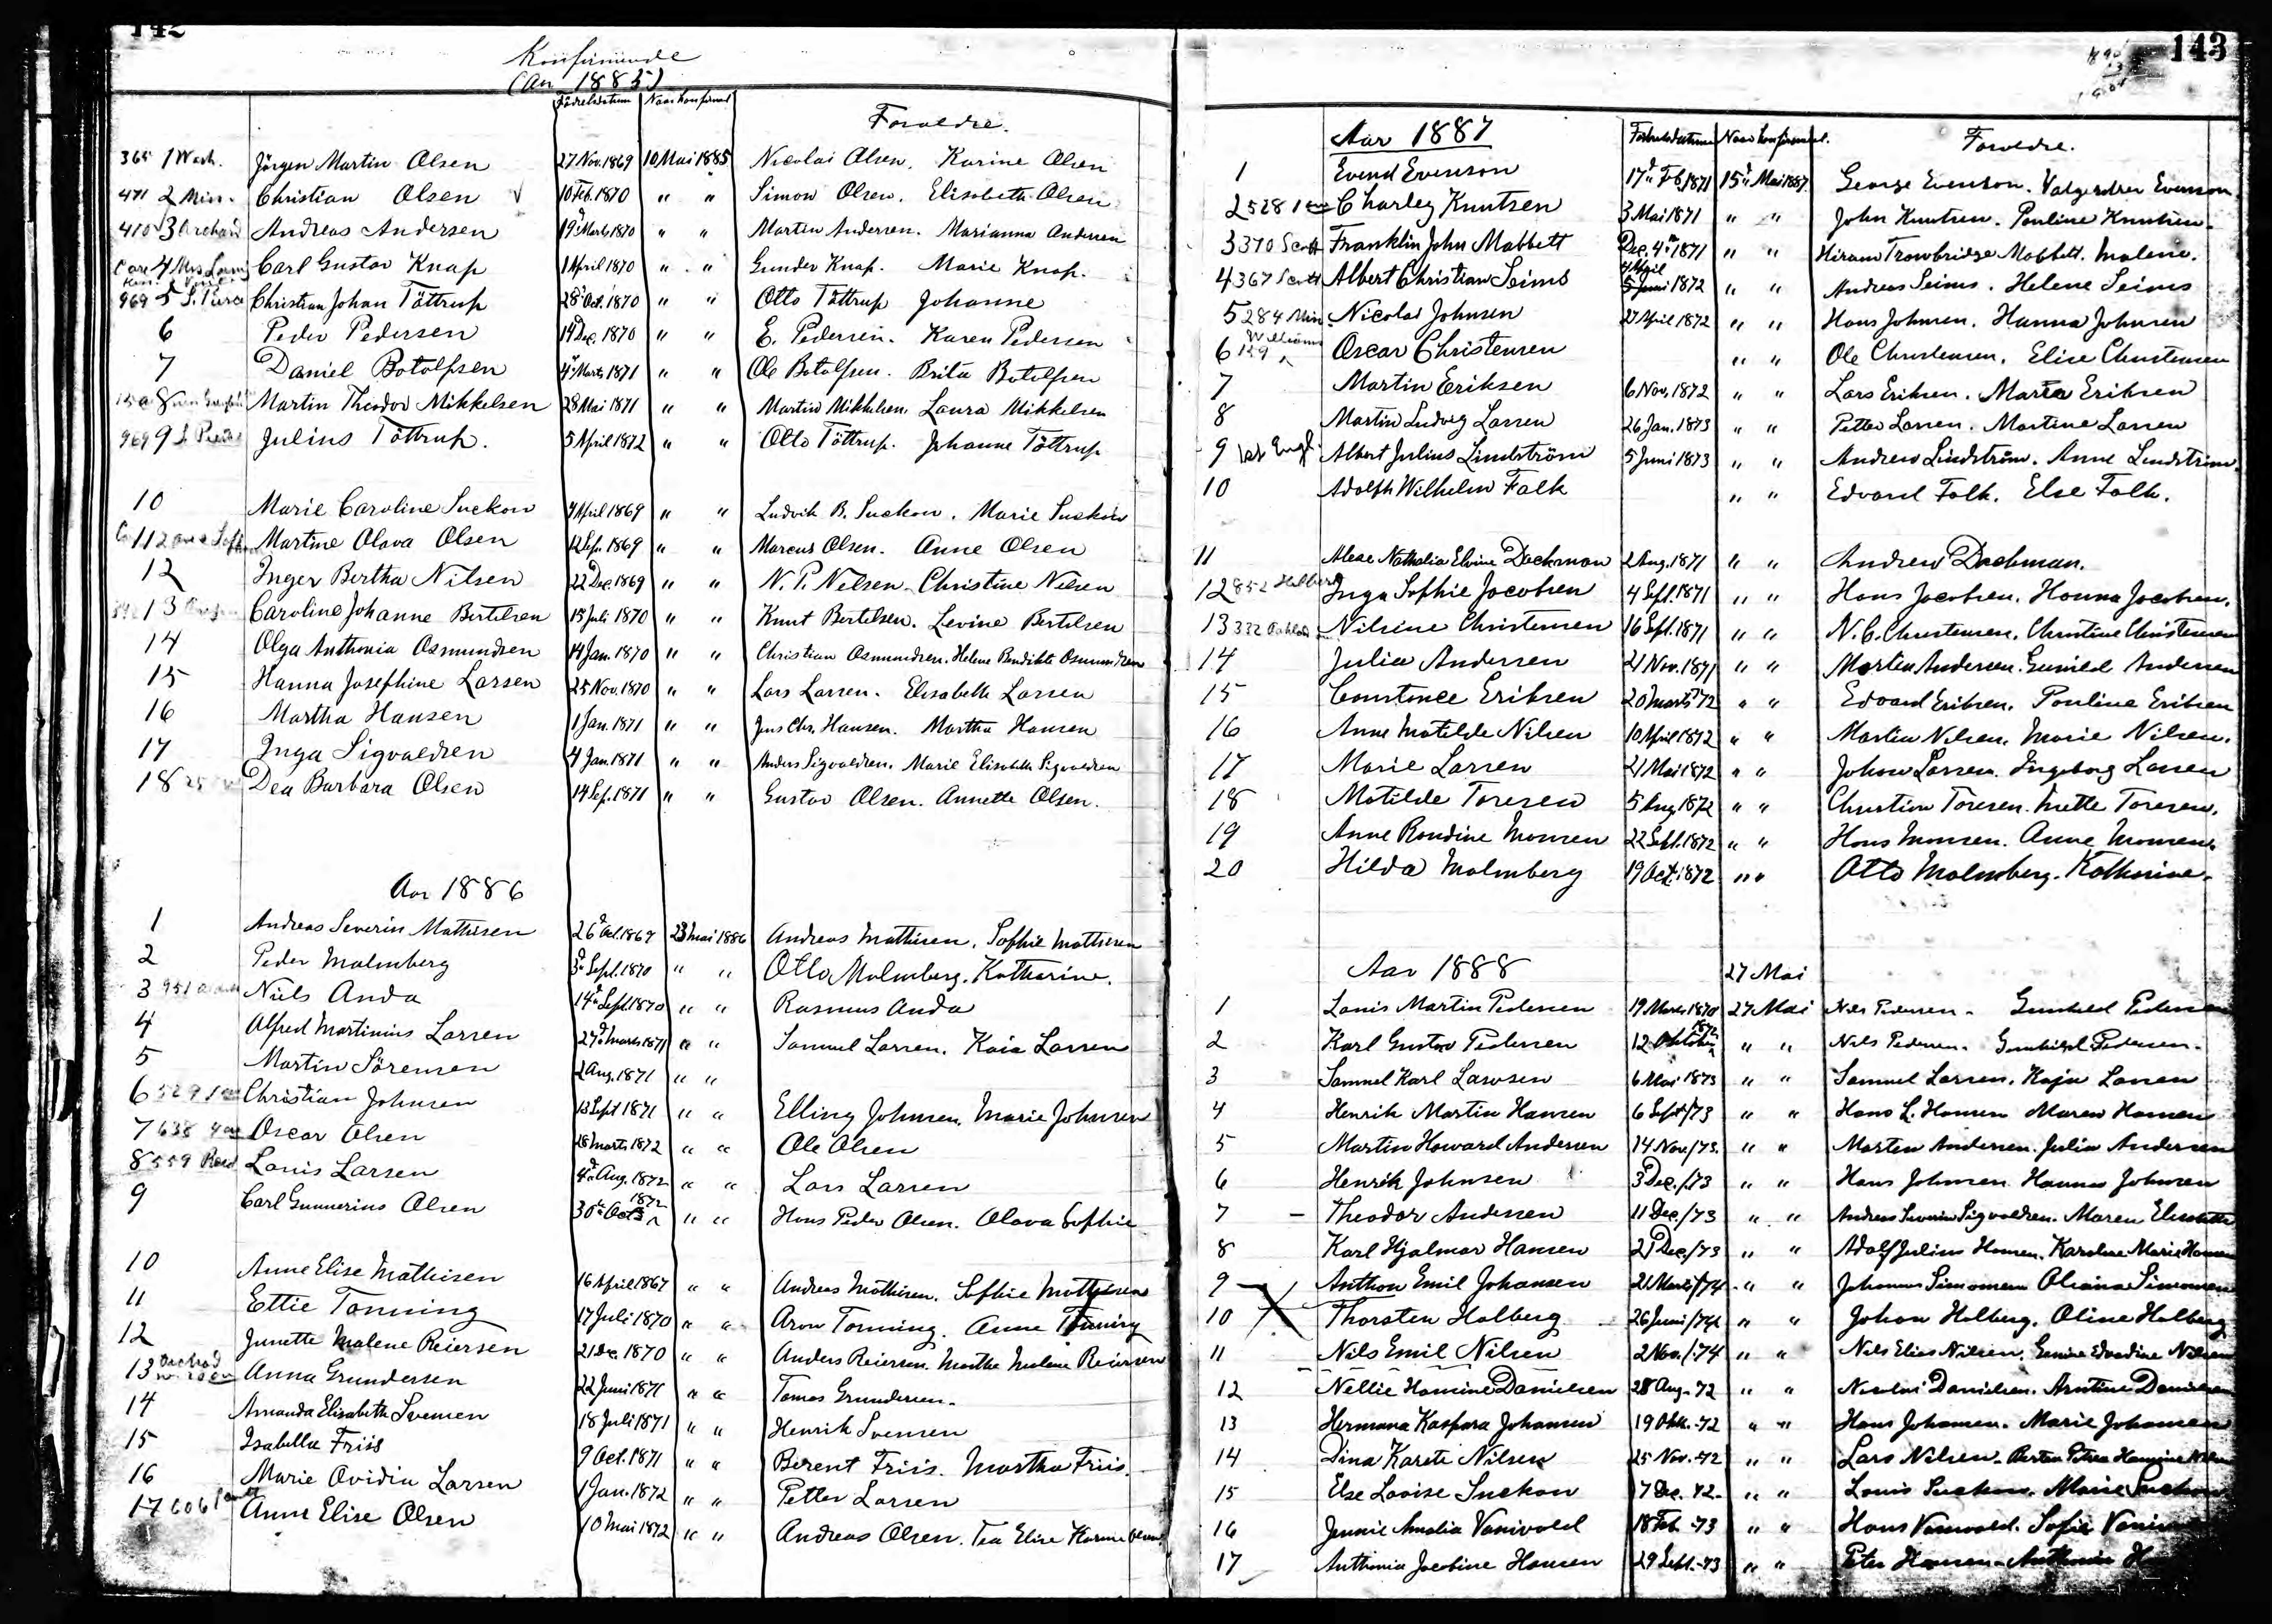 142
Konfirmerede
(Aar 1885)
Födselsdatum Naar konfirmert Forældre.
365 1 Wash. Jörgen Martin Olsen 27 Nov. 1869 10 Mai 1885 Nicolai Olsen. Karine Olsen
471 2 Minn. Christian Olsen 10 Feb. 1870 " " Simon Olsen. Elisabeth Olsen
410 3 Orchard Andreas Andersen 19 Marts 1870 " " Martin Andersen. Marianna Andersen
4 Carl Gustav Knap 1 April 1870 " " Gunder Knap. Marie Knap.
969 5 Christian Johan Töttrup 28 Oct. 1870 " " Otto Töttrup Johanne
6 Peder Pedersen 14 Dec. 1870 " " E. Pedersen. Karen Pedersen
7 Daniel Botolfsen 4 Marts 1871 " " Ole Botolfsen. Brita Botolfsen
8 Martin Theodor Mikkelsen 28 Mai 1871 " " Martin Mikkelsen. Laura Mikkelsen
969 9 Julius Töttrup. 5 April 1872 " " Otto Töttrup. Johanne Töttrup
10 Marie Caroline Suckow 4 April 1869 " " Ludvik B. Suckow. Marie Suckow
11 Martine Olava Olsen 12 Sep. 1869 " " Marcus Olsen. Anne Olsen
12 Inger Bertha Nilsen 22 Dec. 1869 " " N. P. Nelsen. Christine Nelsen
13 Caroline Johanne Bertelsen 15 Juli 1870 " " Knut Bertelsen. Levine Bertelsen
14 Olga Anthonia Osmundsen 14 Jan. 1870 " " Christian Osmundsen. Helene Bendikte Osmundsen
15 Hanna Josephine Larsen 25 Nov. 1870 " " Lars Larsen. Elisabeth Larsen
16 Martha Hansen 1 Jan. 1871 " " Jens Chr. Hansen. Martha Hansen
17 Inga Sigvaldsen 4 Jan. 1871 " " Anders Sigvaldsen. Marie Elisabeth Sigvaldsen
18 Dea Barbara Olsen 14 Sep. 1871 " " Gustav Olsen. Annette Olsen.
Aar 1886
1 Andreas Severin Mathisen 26 Oct. 1869 23 Mai 1886 Andreas Mathisen. Sophie Mathisen
2 Peder Malmberg 3 Sept. 1870 " " Otto Malmberg. Katharine.
3 951 Niels Anda 14 Sept. 1870 " " Rasmus Anda
4 Alfred Martinius Larsen 27 Marts 1871 " " Samuel Larsen. Kaia Larsen
5 Martin Sörensen 2 Aug. 1871 " "
6 529 1 ave Christian Johnsen 13 Sept 1871 " " Elling Johnsen. Marie Johnsen
7 638 4 ave Oscar Olsen 28 Marts 1872 " " Ole Olsen
8 559 Reed Louis Larsen 4 Aug. 1872 " " Lars Larsen
9 Carl Gunnerius Olsen 30 Oct. 1872 " " Hans Peder Olsen. Olava Sophie
10 Anne Elise Mathisen 16 April 1867 " " Andreas Mathisen. Sophie Mathisen
11 Ettie Tonning 17 Juli 1870 " " Aron Tonning. Anne Tonning
12 Junette Malene Reiersen 21 Dec. 1870 " " Anders Reiersen. Marthe Malene Reiersen
13 Orchard Anna Grundersen 22 Juni 1871 " " Tomas Grundersen.
14 Amanda Elisabeth Svensen 18 Juli 1871 " " Henrik Svensen
15 Isabella Friis 9 Oct. 1871 " " Berent Friis. Martha Friis.
16 Marie Ovidia Larsen 1 Jan. 1872 " " Petter Larsen
17 606 Anne Elise Olsen 10 Mai 1872 " " Andreas Olsen. Tea Elise Karine Olsen
143
Aar 1887 Födselsdatum Naar konfirmeret. Forældre.
1 Evend Evenson 17 Feb 1871 15 Mai 1887 George Evenson. Valgerdrea Evenson
2 528 1 ave Charley Knutsen 3 Mai 1871 " " John Knutsen. Pauline Knutsen.
3 370 Scott Franklin John Mabbett Dec. 4 1871 " " Hiram Trowbridge Mabbett. Malene.
4 367 Scott Albert Christian Seims 4 April 1872 " " Andreas Seims. Helene Seims
5 284 Min. Nicolai Johnsen 27 April 1872 " " Hans Johnsen. Hanna Johnsen
6 129 Williams Oscar Christensen " " Ole Christensen. Elise Christensen
7 Martin Eriksen 6 Nov. 1872 " " Lars Eriksen. Marta Eriksen
8 Martin Ludvig Larsen 26 Jan. 1873 " " Petter Larsen. Martine Larsen
9 Albert Julius Lindström 5 Juni 1873 " " Andrew Lindström. Anne Lindström.
10 Adolph Wilhelm Falk " " Edvard Falk. Else Falk.
11 Nathalia Elvine Dachman 2 Aug. 1871 " " Andrew Dachman.
12 852 Inga Sophie Jacobsen 4 Sept. 1871 " " Hans Jacobsen. Hanna Jacobsen.
13 332 Nilsine Christensen 16 Sept. 1871 " " N. C. Christensen. Christine Christensen
14 Julia Andersen 21 Nov. 1871 " " Martin Andersen. Gunild Andersen
15 Constance Eriksen 20 Marts 72 " " Edvard Eriksen. Pauline Eriksen
16 Anne Matilde Nilsen 10 April 1872 " " Martin Nilsen. Marie Nilsen.
17 Marie Larsen 21 Mai 1872 " " Johan Larsen. Ingeborg Larsen
18 Matilde Toresen 5 Aug. 1872 " " Christian Toresen. Mette Toresen.
19 Anne Rondine Monsen 22 Sept. 1872 " " Hans Monsen. Anne Monsen.
20 Hilda Malmberg 19 Oct. 1872 " " Otto Malmberg. Katharine.
Aar 1888 27 Mai
1 Louis Martin Pedersen 19 Marts 1870 27 Mai Nils Pedersen. Gunhild Pedersen
2 Karl Gustav Pedersen 12 Oktober 1872 " " Nils Pedersen. Gunhild Pedersen.
3 Samuel Karl Lawsen 6 Mai 1873 " " Samuel Larsen. Kaja Larsen
4 Henrik Martin Hansen 6 Sept/73 " " Hans L. Hansen Maren Hansen
5 Martin Howard Andersen 14 Nov/73. " " Martin Andersen. Julia Andersen
6 Henrik Johnsen 3 Dec./73 " " Hans Johnsen Hanna Johnsen
7 Theodor Andersen 11 Dec./73 " " Andreas Severin Sigvaldsen. Maren Elisabeth
8 Karl Hjalmar Hansen 21 Dec/73 " " Adolf Julius Hansen. Karoline Marie Hansen
9 Anthon Emil Johansen 21 Marts/74 " " Johannes Simonsen Oliana Simonsen
10 Thorsten Holberg 26 Juni/74 " " Johan Holberg. Oline Holberg
11 Nils Emil Nilsen 2 Nov./74 " " Nils Elias Nilsen. Edvardine Nilsen
12 Nellie Hansine Danielsen 28 Aug. 72 " " Nicolai Danielsen. Danielsen
13 Hermana Kaspara Johansen 19 Okt. -72 " " Hans Johansen. Marie Johansen
14 Dina Karete Nilsen 25 Nov. -72 " " Lars Nilsen. Petrea Hansine Nilsen
15 Else Lovise Suckow 17 Dec. 72. " " Louis Suckow. Marie Suckow
16 Jennie Amalia Vanivold 18 Feb -73 " " Hans Vanivold. Sofie
17 Anthonia Jacobine Hansen 29 Sept. -73 " " Peter Hansen